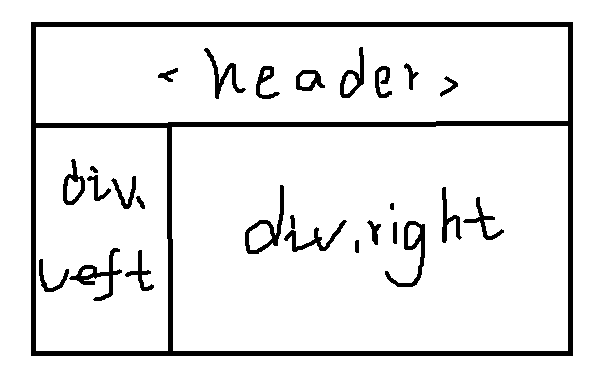 <header>
div.
left
div.right